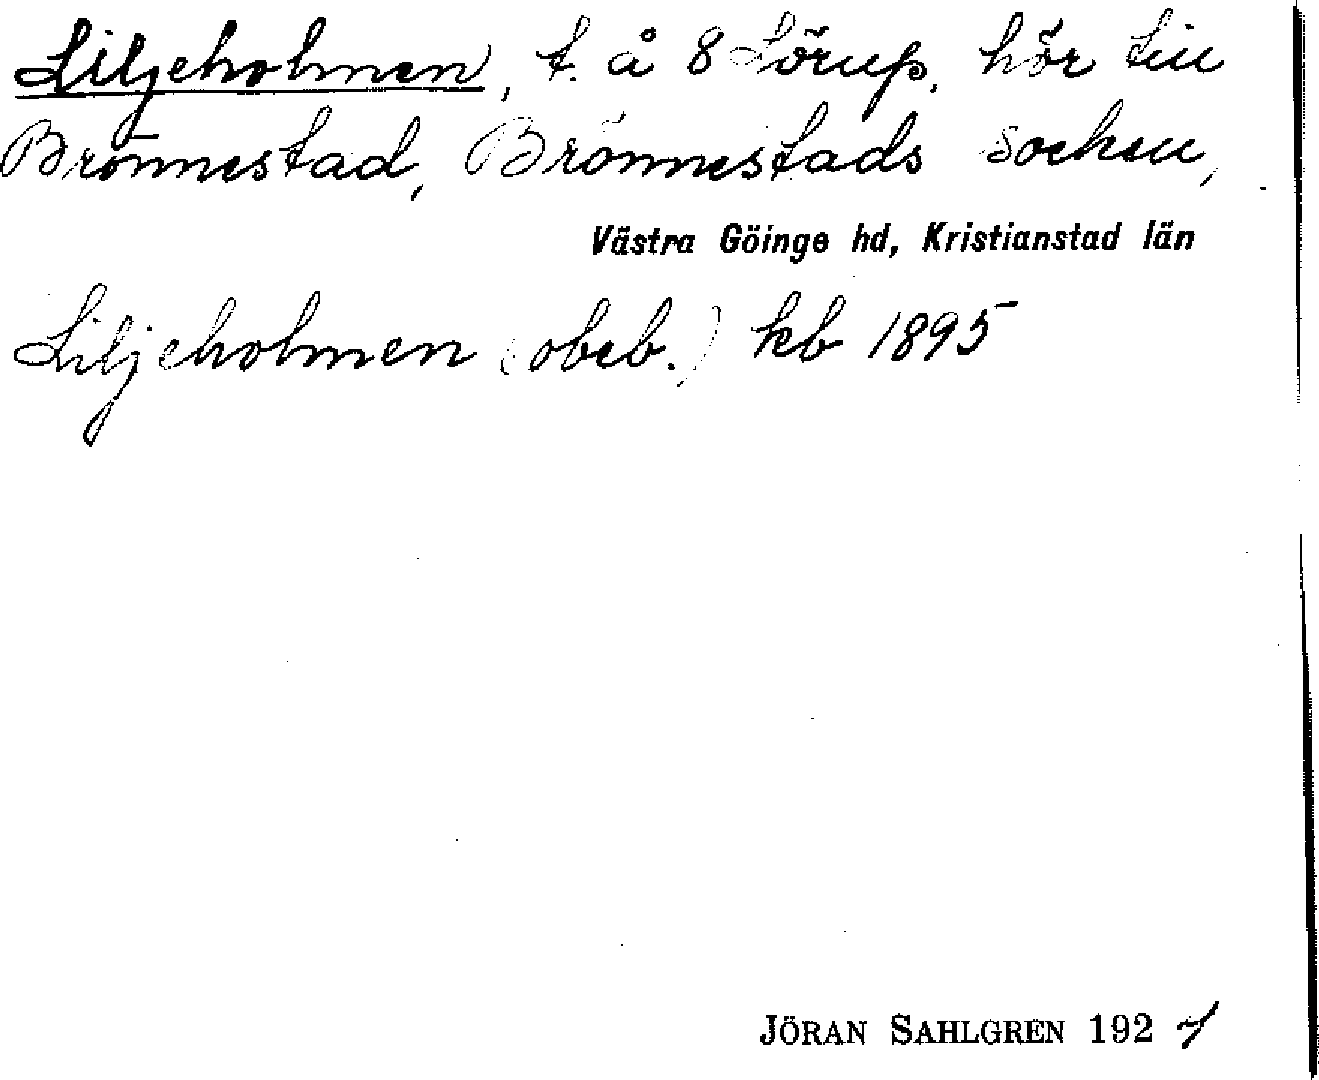 Liljeholmen, t. å 8 Lörup, hör till
Brönnestad, Brönnestads socken,
Västra Göinge hd, Kristianstad län
Liljeholmen (obeb.) kb 1895
JÖRAN SAHLGREN 1927